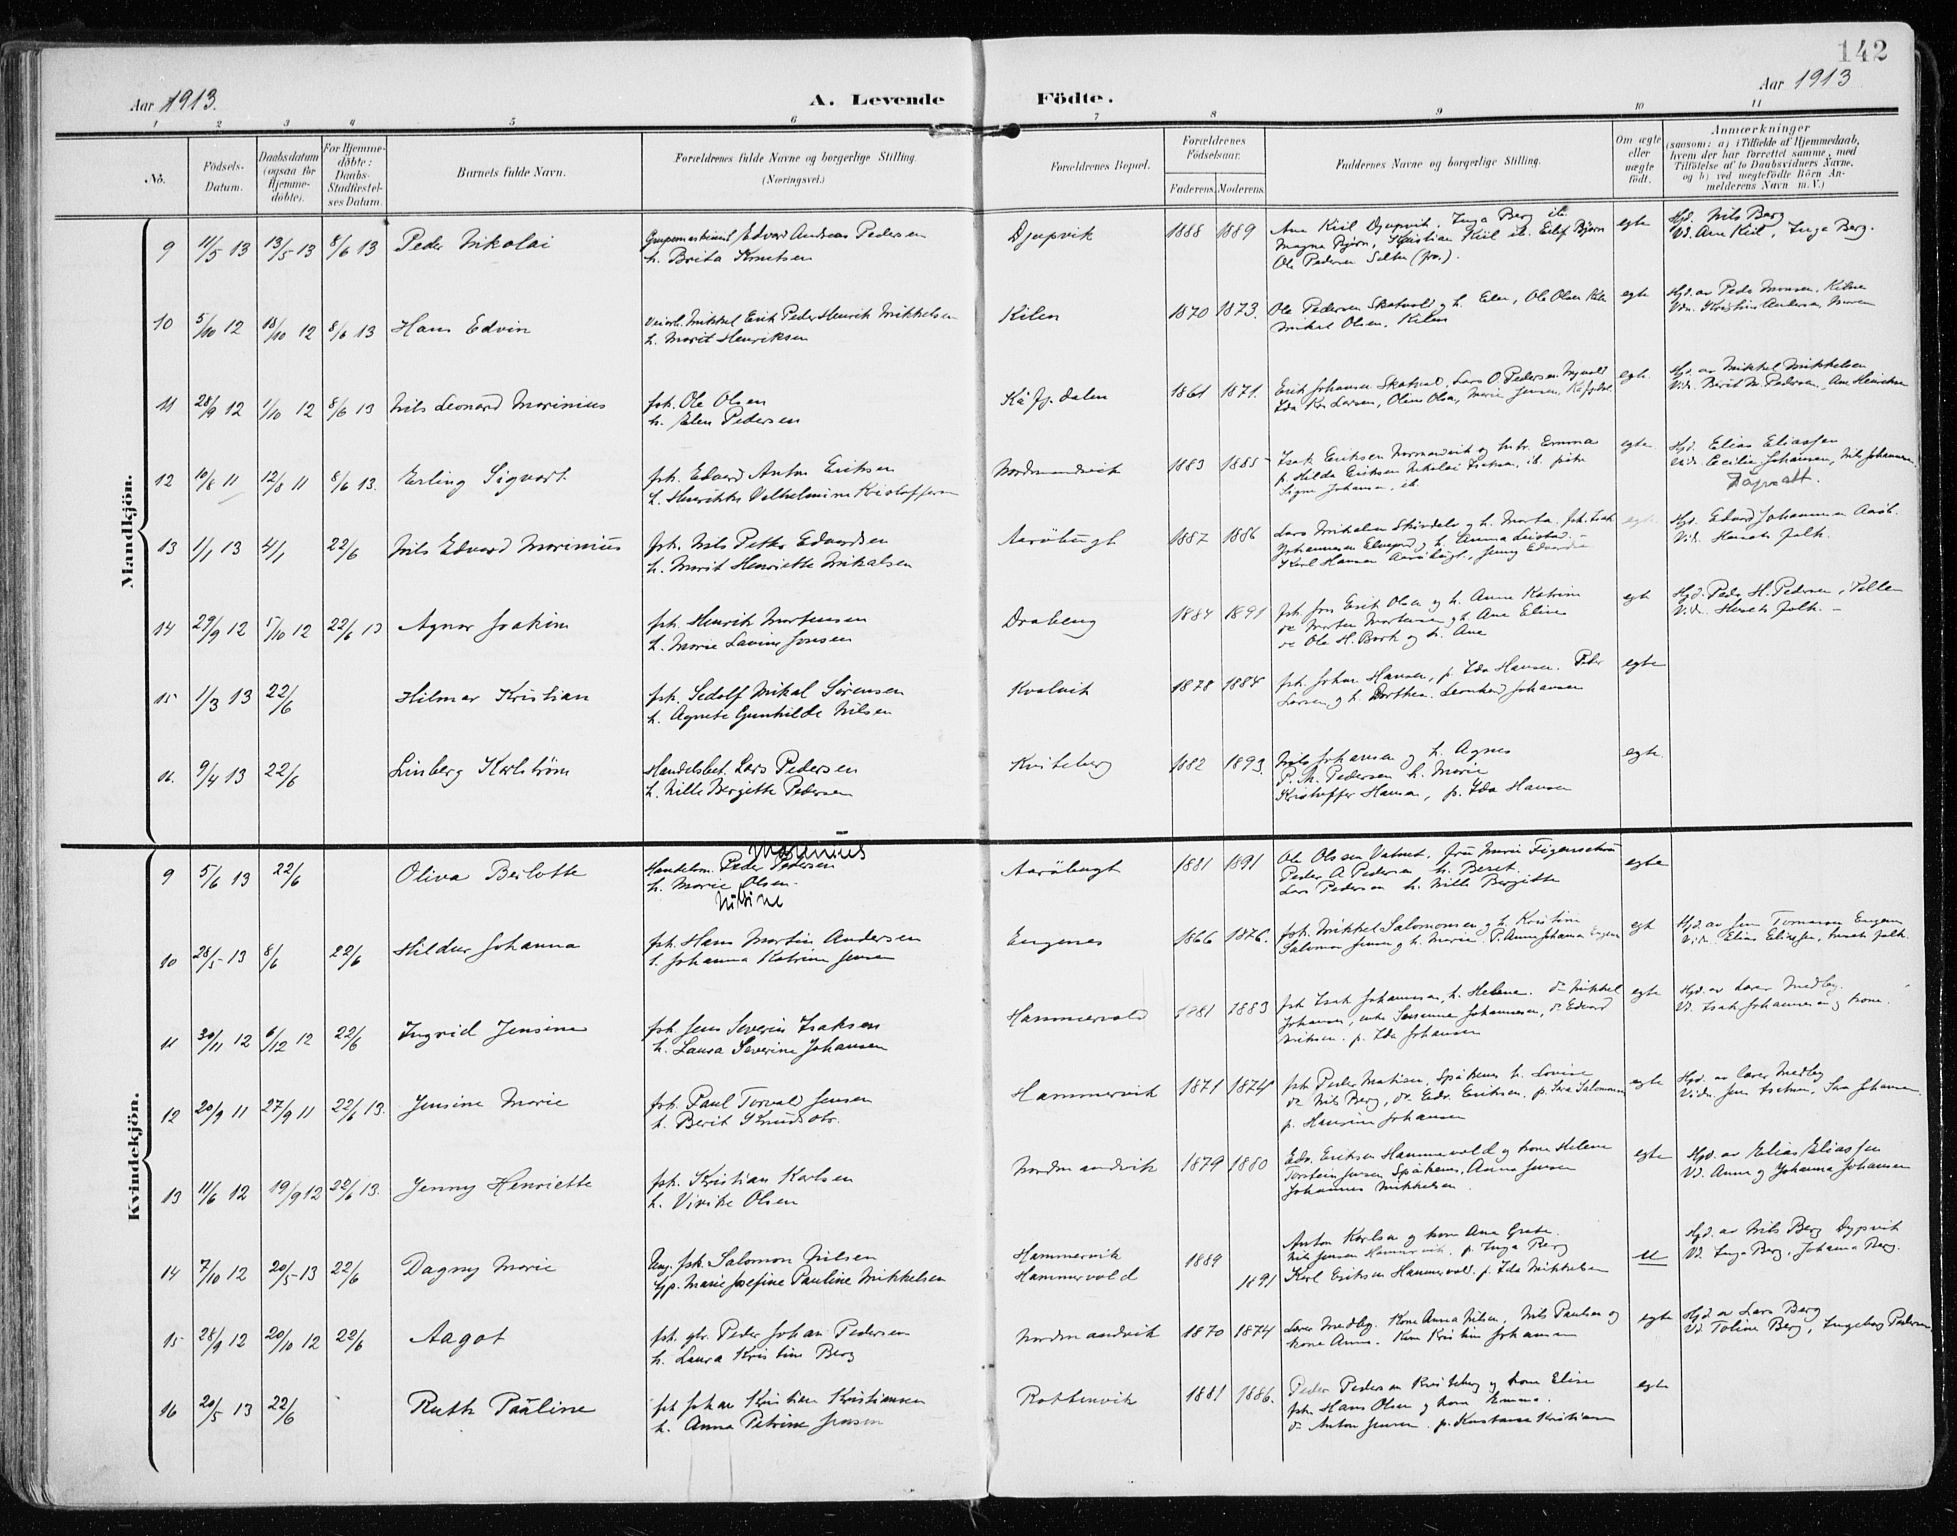 142
Aar 1913.
A. Levende Födte.
Aar 1913
1 2 3 4 5 6 7 8 9 10 11
No.
Födsels-Datum.
Daabsdatum (ogsaa for Hjemme-döbte).
For Hjemme-döbte: Daabs-Stadfæstel-ses Datum.
Barnets fulde Navn.
Forældrenes fulde Navne og borgerlige Stilling.
(Næringsvei.)
Forældrenes Bopæl.
Forældrenes Födselsaar.
Faderens. Moderens.
Faddernes Navne og borgerlige Stilling.
Om ægte eller uægte födt.
Anmærkninger
(saasom: a) i Tilfælde af Hjemmedaab, hvem der har forrettet samme, med Tilföielse af to Daabsvidners Navne, og b) ved uegtefödte Börn An-melderens Navn m. V.)
Mandkjön.
9 11/5 13 13/5 13 8/6 13 Peder Nikolai
Edvard Andreas Pedersen
h. Brita Knutsen
Djupvik 1888 1889
Ane Kiil Djupvik, Inga Berg
Magna Bjørn, Kristian Kiil
Ole Pedersen
egte
Hjd. Nils Berg
Vd. Ane Kiil, Inga Berg.
10 5/10 12 /10 12 8/6 13 Hans Edvin
Mikkel Erik Peder Henrik Mikkelsen
h. Marit Henriksen
Kilen 1870 1873.
Ole Pedersen Skatvold og h. Elen, Ole Olsen
Mikal Olsen, Kilen
egte
Hjd. av Peder Monsen
11 28/9 12 1/10 12 8/6 13 Nils Leonard Marinius
fsk. Ole Olsen
h. Elen Pedersen
Kåfj.dalen 1861 1871.
Erik Johansen Skatvold, Lars O. Pedersen
egte.
Hjd. av Mikkel Mikkelsen
12 10/8 11 12/8 11 8/6 13. Erling Sigvart
fsk. Edvard Anton Eriksen
h. Henrikke Vilhelmine Kristoffersen
Nordmandvik 1883 1885
Isak Eriksen Normandvik og hstr. Emma
p. Hilda Eriksen
Signe Johansen
egte
Hjd. Elias Eliassen
Vidn. Cecilie Johansen, Nils Johansen
13 1/1 13 4/1 22/6 Nils Edvard Marinius
fsk. Nils Petter Edvardsen
h. Marit Henriette Mikalsen
Aarøbugt 1887 1886
Karl Hansen Aarøbugt, Jenny Edvardsen
Hjd. Edvard Johannesen
Vid. Husets folk.
14 29/9 12 5/10 12 22/6 13 Agnar Joakim
fsk. Henrik Mortensen
h. Marie Lavine Jensen
Drabeng 1884 1891
fsk. Erik Olsen og h. Anne Katrine
do Morten Mortensen og h. Ane Eline
do Ole H. Bork og h. Ane
egte
Hjd. Peder H. Pedersen
Vid. Husets folk. -
15 1/3 13 22/6 Hilmar Kristian
fsk. Sedolf Mikal Sørensen
h. Agnete Gunhilde Nilsen
Kvalvik 1878 1884
fsk. Johan Hansen, p. Ida Hansen. Peder
Larsen og h. Dorthea. Leonhard Johansen
egte
16. 9/4 13 22/6 Linberg Karlstrøm
Handelsbet. Lars Pedersen
h. Nille Bergitte Pedersen
Kviteberg 1882 1893.
Nils Johansen og h. Agnes
P. M. Pedersen h. Marie
Kristoffer Hansen, p. Ida Hansen
egte.
Kvindekjön.
9 5/6 13 22/6 Oliva Berlotte
Marinius
Handelsm. Peder Pedersen
h. Marie Olsen.
Nilsine
Aarøbugt 1881 1891
Ole Olsen Vatnet. fru Marie Figenschou
Peder A Pedersen h. Beret.
Lars Pedersen h. Nille Bergitte
egte
10 28/5 13 8/6 22/6 Hildur Johanna
fsk. Hans Martin Andersen
h. Johanna Katrine Jensen
Engenes 1866 1876.
fsk. Mikkel Salomonsen og h. Kristine
Salomon Jensen og h. Marie. P. Anne Johansen Engenes
egte
Hjd. av Jens Tomassen Engenes
Vidn. Elias Eliassen, husets folk.
11 30/11 12 6/12 12 22/6 Ingrid Jensine
fsk. Jens Severin Isaksen
h. Laura Severine Johansen
Hammervold 1881 1883
fsk. Isak Johannesen, h. Helene. do Mikkel
Johansen, enke Susanne Johannesen, do Edvard
Eriksen. p. Ida Johansen
egte
Hjd. av lærer Medby.
Vd. Isak Johannesen og kone.
12 20/9 11 27/9 11 22/6 13. Jensine Marie
fsk. Paul Torvald Jensen
h. Berit Knudsdtr.
Hammervik 1871 1874
fsk Peder Matisen, Spåkenes h. Lovise
do Nils Berg, do. Edv. Eriksen, p. Sara Salomonsen
p. Hansine Johansen
egte
Hjd. av lærer Medby
Vidn. Jens Isaksen, Sara Johansen
13 11/6 12 19/9 12 22/6 13. Jenny Henriette
fsk. Kristian Karlsen
h. Vivike Olsen
Nordmandvik 1879 1880
Edv. Eriksen Hammervold og kone Helene
Torstein Jensen, Spåkenes, Anna Jensen
Johannes Mikkelsen
egte
Hjd. av Elias Eliassen
Vd. Anne og Johanna Johansen
14 7/10 12 20/5 13 22/6 Dagny Marie
Ung. fsk. Salomon Nilsen
Gp. Marie Josefine Pauline Mikkelsen
Hammervik
Hammervold
1889
1891
Anton Karlsen og kone Ane Grete.
Nils Jensen Hammervik. p. Inga Berg
Karl Eriksen Hammervold. p. Ida Mikkelsen
u
Hjd. av Nils Berg Dypvik
Vd. Inga Berg, Johanna Berg.
15 28/9 12 20/10 12 22/6 Aagot
fsk. gbr. Peder Johan Pedersen
h. Laura Kristine Berg
Nordmandvik 1870 1874
Lærer Medby. Kone Anna Nilsen, Nils Paulsen og
kone Anna. Kone Kristine Johansen
egte
Hjd. av Lars Berg
Vd. Toline Berg, Ingeborg Pedersen
16 20/5 13 22/6 Ruth Påuline
fsk Johan Kristian Kristiansen
h. Anna Petrine Jensen
Rottenvik 1881 1886.
Peder Pedersen Kviteberg og kone Elise
fsk. Hans Olsen og kone Emma.
do Anton Jensen. p. Konstanse Kristiansen
egte